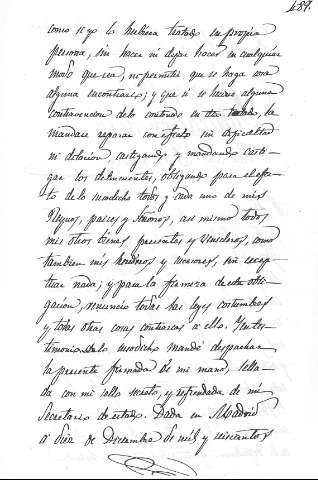 489.
como si yo lo hubiera tratado en propia
persona, sin hacer ni dejar hacer en cualquier
modo que sea, no permitir que se haga cosa
alguna en contrario; y que si se hiciere alguna
contravencion de lo contenido en dicho tratado, la
mandare reparar con efecto sin dificultad
ni dilacion, castigando y mandando casti-
gar los delincuentes, obligando para el efec-
to de lo susodicho todos y cada uno de mis
Reynos, paises y Señorios, asi mismo todos
mis otros bienes presentes y venideros, como
tambien mis herederos y sucesores, sin excep-
tuar nada; y para la firmeza de esta obli-
gacion, renuncio todas las leyes costumbres
y todas otras cosas contrarias a ello. En tes-
timonio de lo susodicho mandé despachar
la presente firmada de mi mano, sella-
da con mi sello secreto, y refrendada de mi
Secretario de estado. Dada en Madrid
a diez de Diciembre de mil y seiscientos